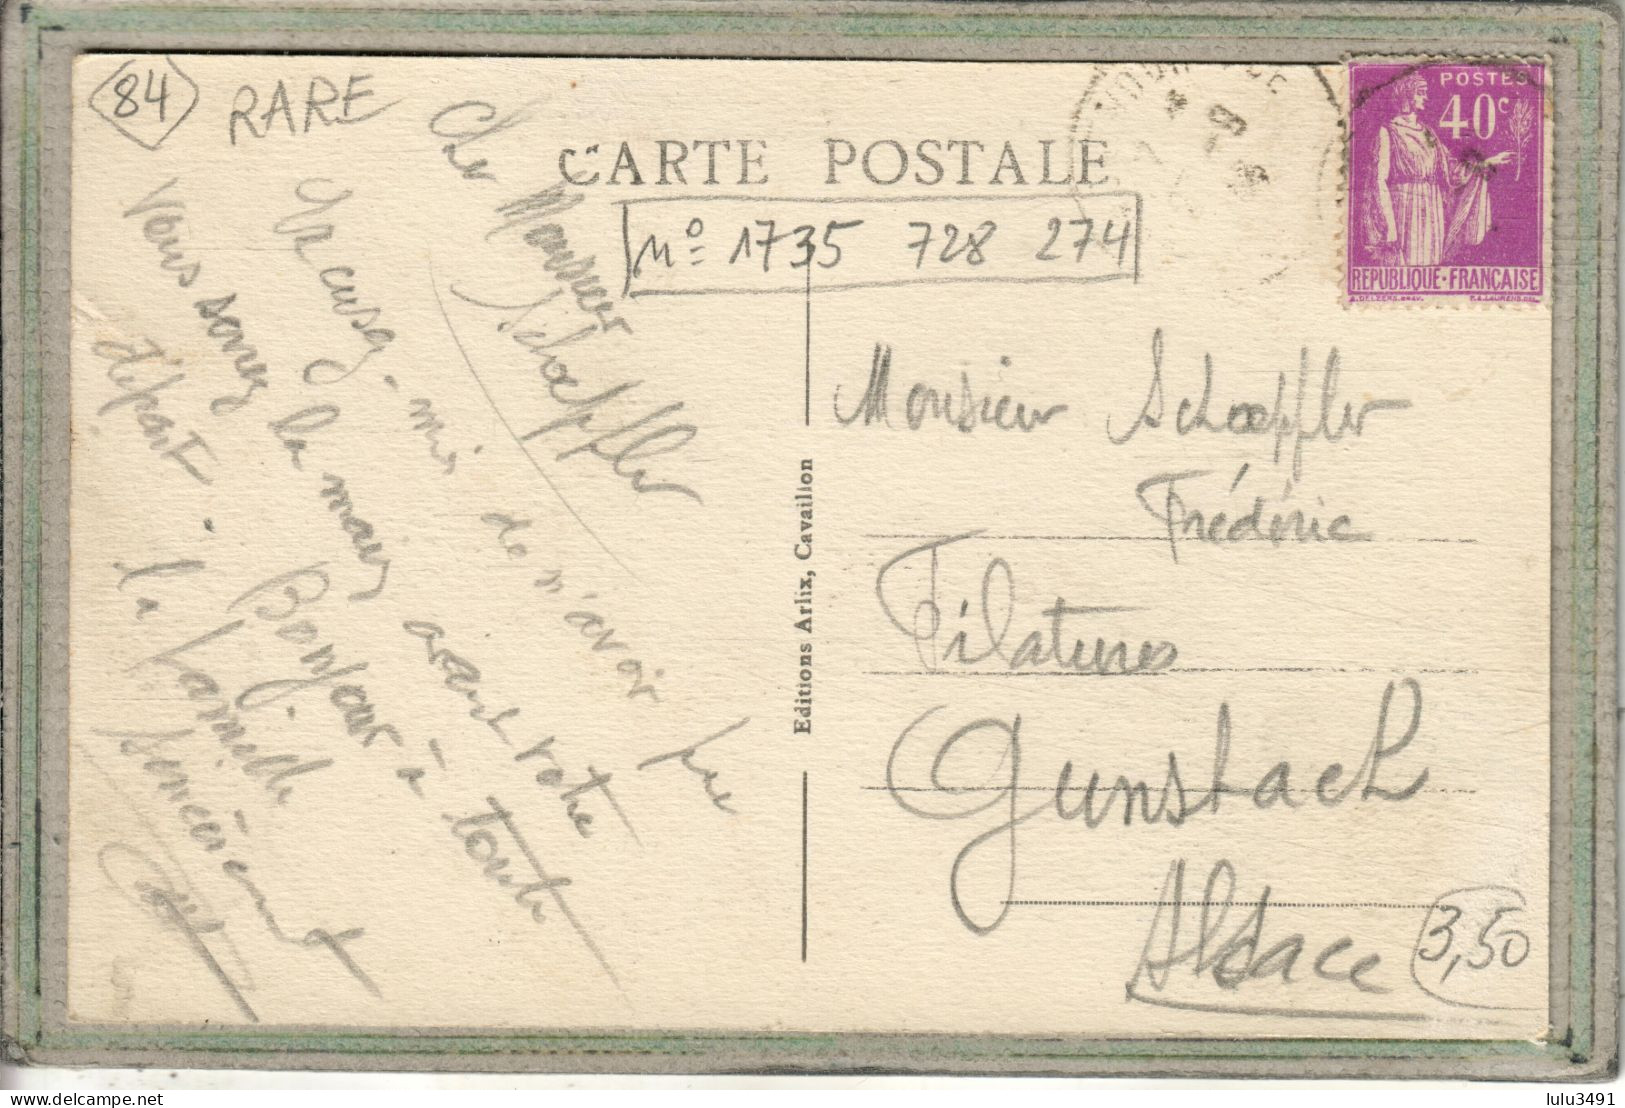 84
RARE
CARTE POSTALE
No 1735 728 274
POSTES
40c
REPUBLIQUE·FRANÇAISE
Cher Monsieur
Schoeffler
Excusez-mois de n'avoir pu
vous sonner la main avant votre
départ. Bonjour à toute
la famille
Sincèrement
Editions Arlix, Cavaillon
Monsieur Schoeffler
Frédéric
Filatures
Gunsbach
Alsace
3,50
delcampe.net
lulu3491